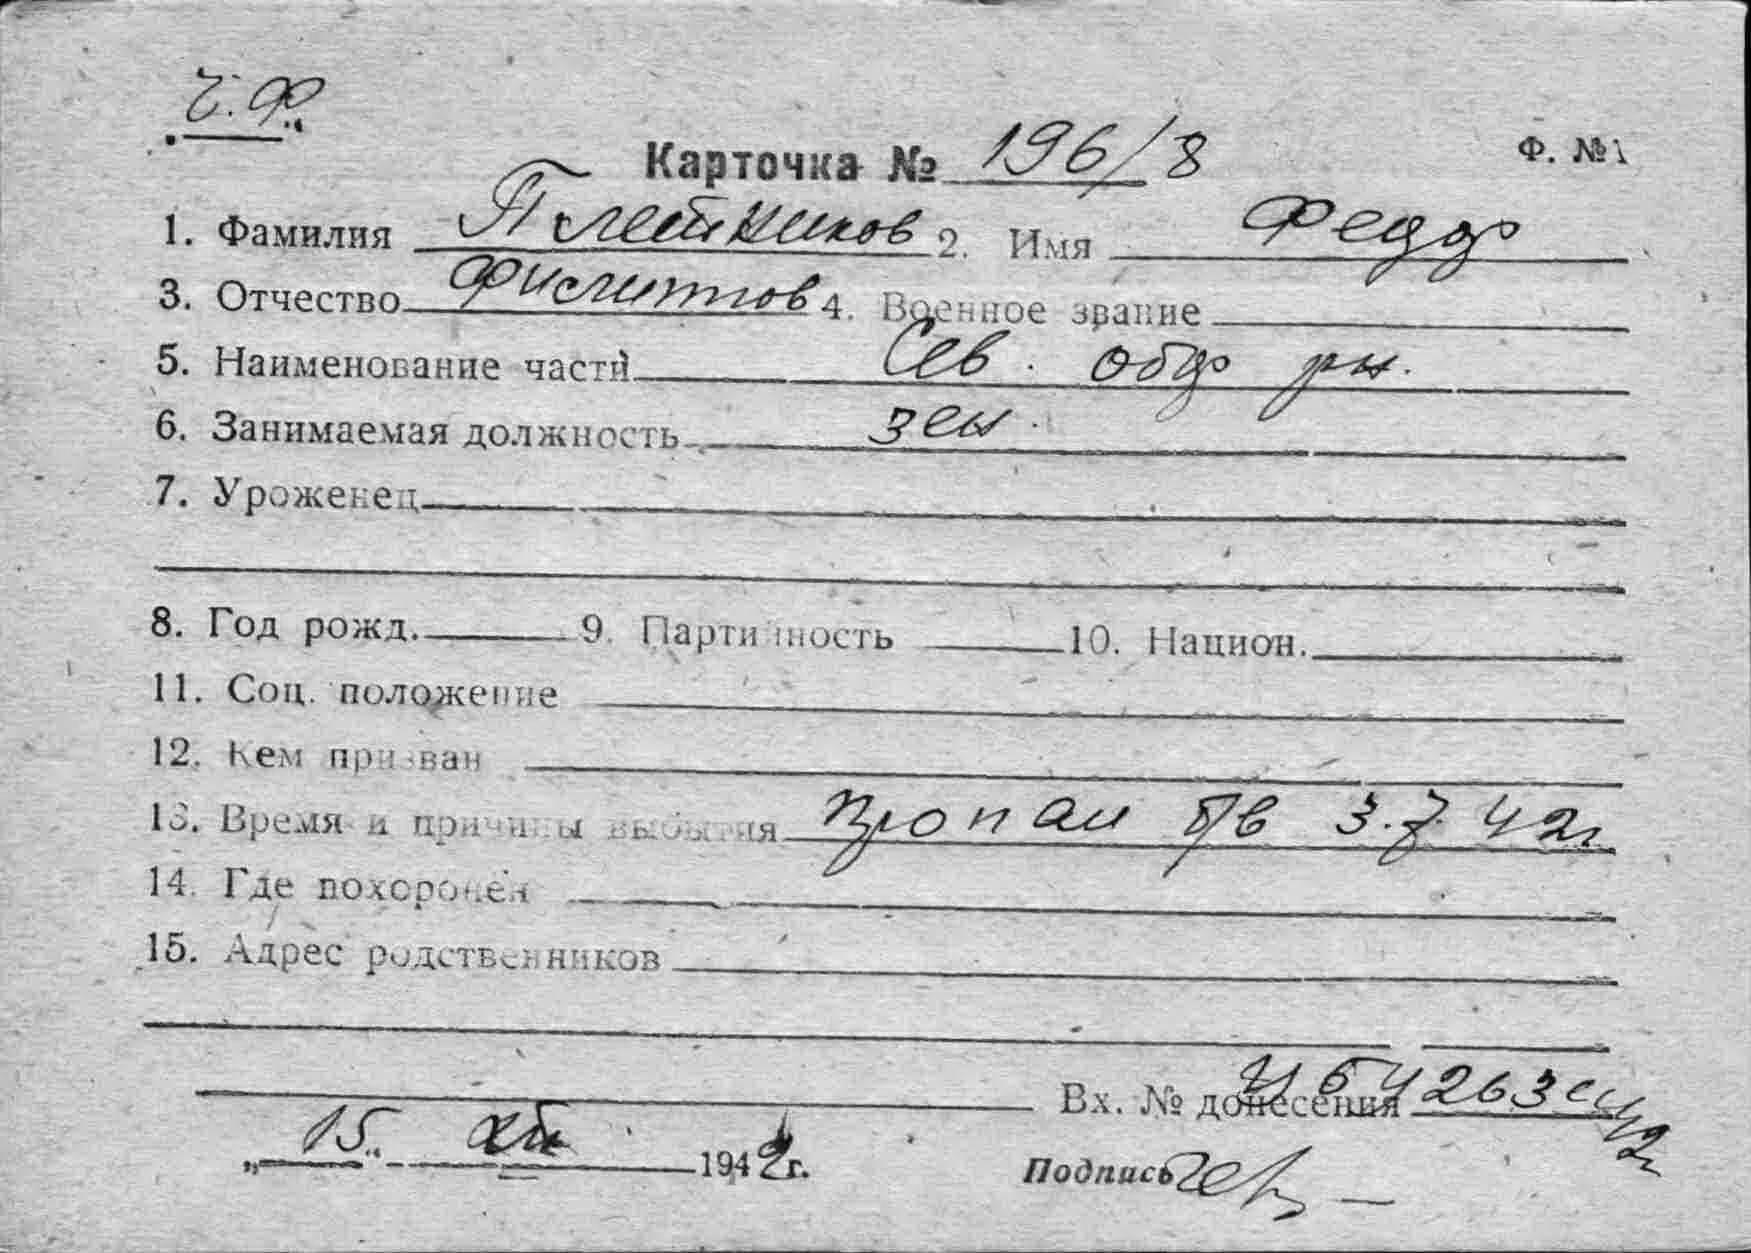 Ч.Ф
Карточка № 196/8 Ф. №1
1. Фамилия Плетников 2. Имя Федор
3. Отчество Филиппов 4. Военное звание
5. Наименование части Сев. обор рн.
6. Занимаемая должность зен.
7. Уроженец
8. Год рожд. 9. Партийность 10. Национ.
11. Соц. положение
12. Кем призван
13. Время и причины выбытия пропал б/в 3.7.42г
14. Где похоронен
15. Адрес родственников
Вх. № донесения
„15“ 1942г. Подпись